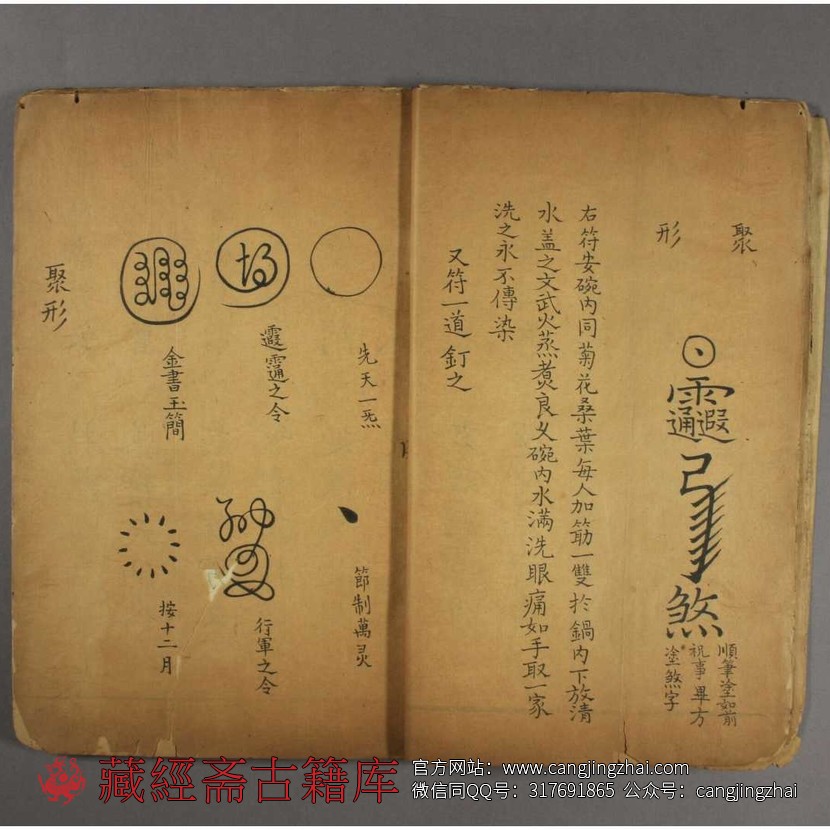 聚
形
順筆塗如前
祝事畢方
塗煞字
煞
右符安碗內同菊花桑葉每人加筯一雙於鍋內下放清
水蓋之文武火蒸煮良久碗內水滿洗眼痛如手取一家
洗之永不傳染
又符一道釘之
先天一炁
節制萬灵
之令
行軍之令
金書玉簡
按十二月
聚形
藏經斋古籍库
官方网站：www.cangjingzhai.com
微信同QQ号：317691865 公众号：cangjingzhai